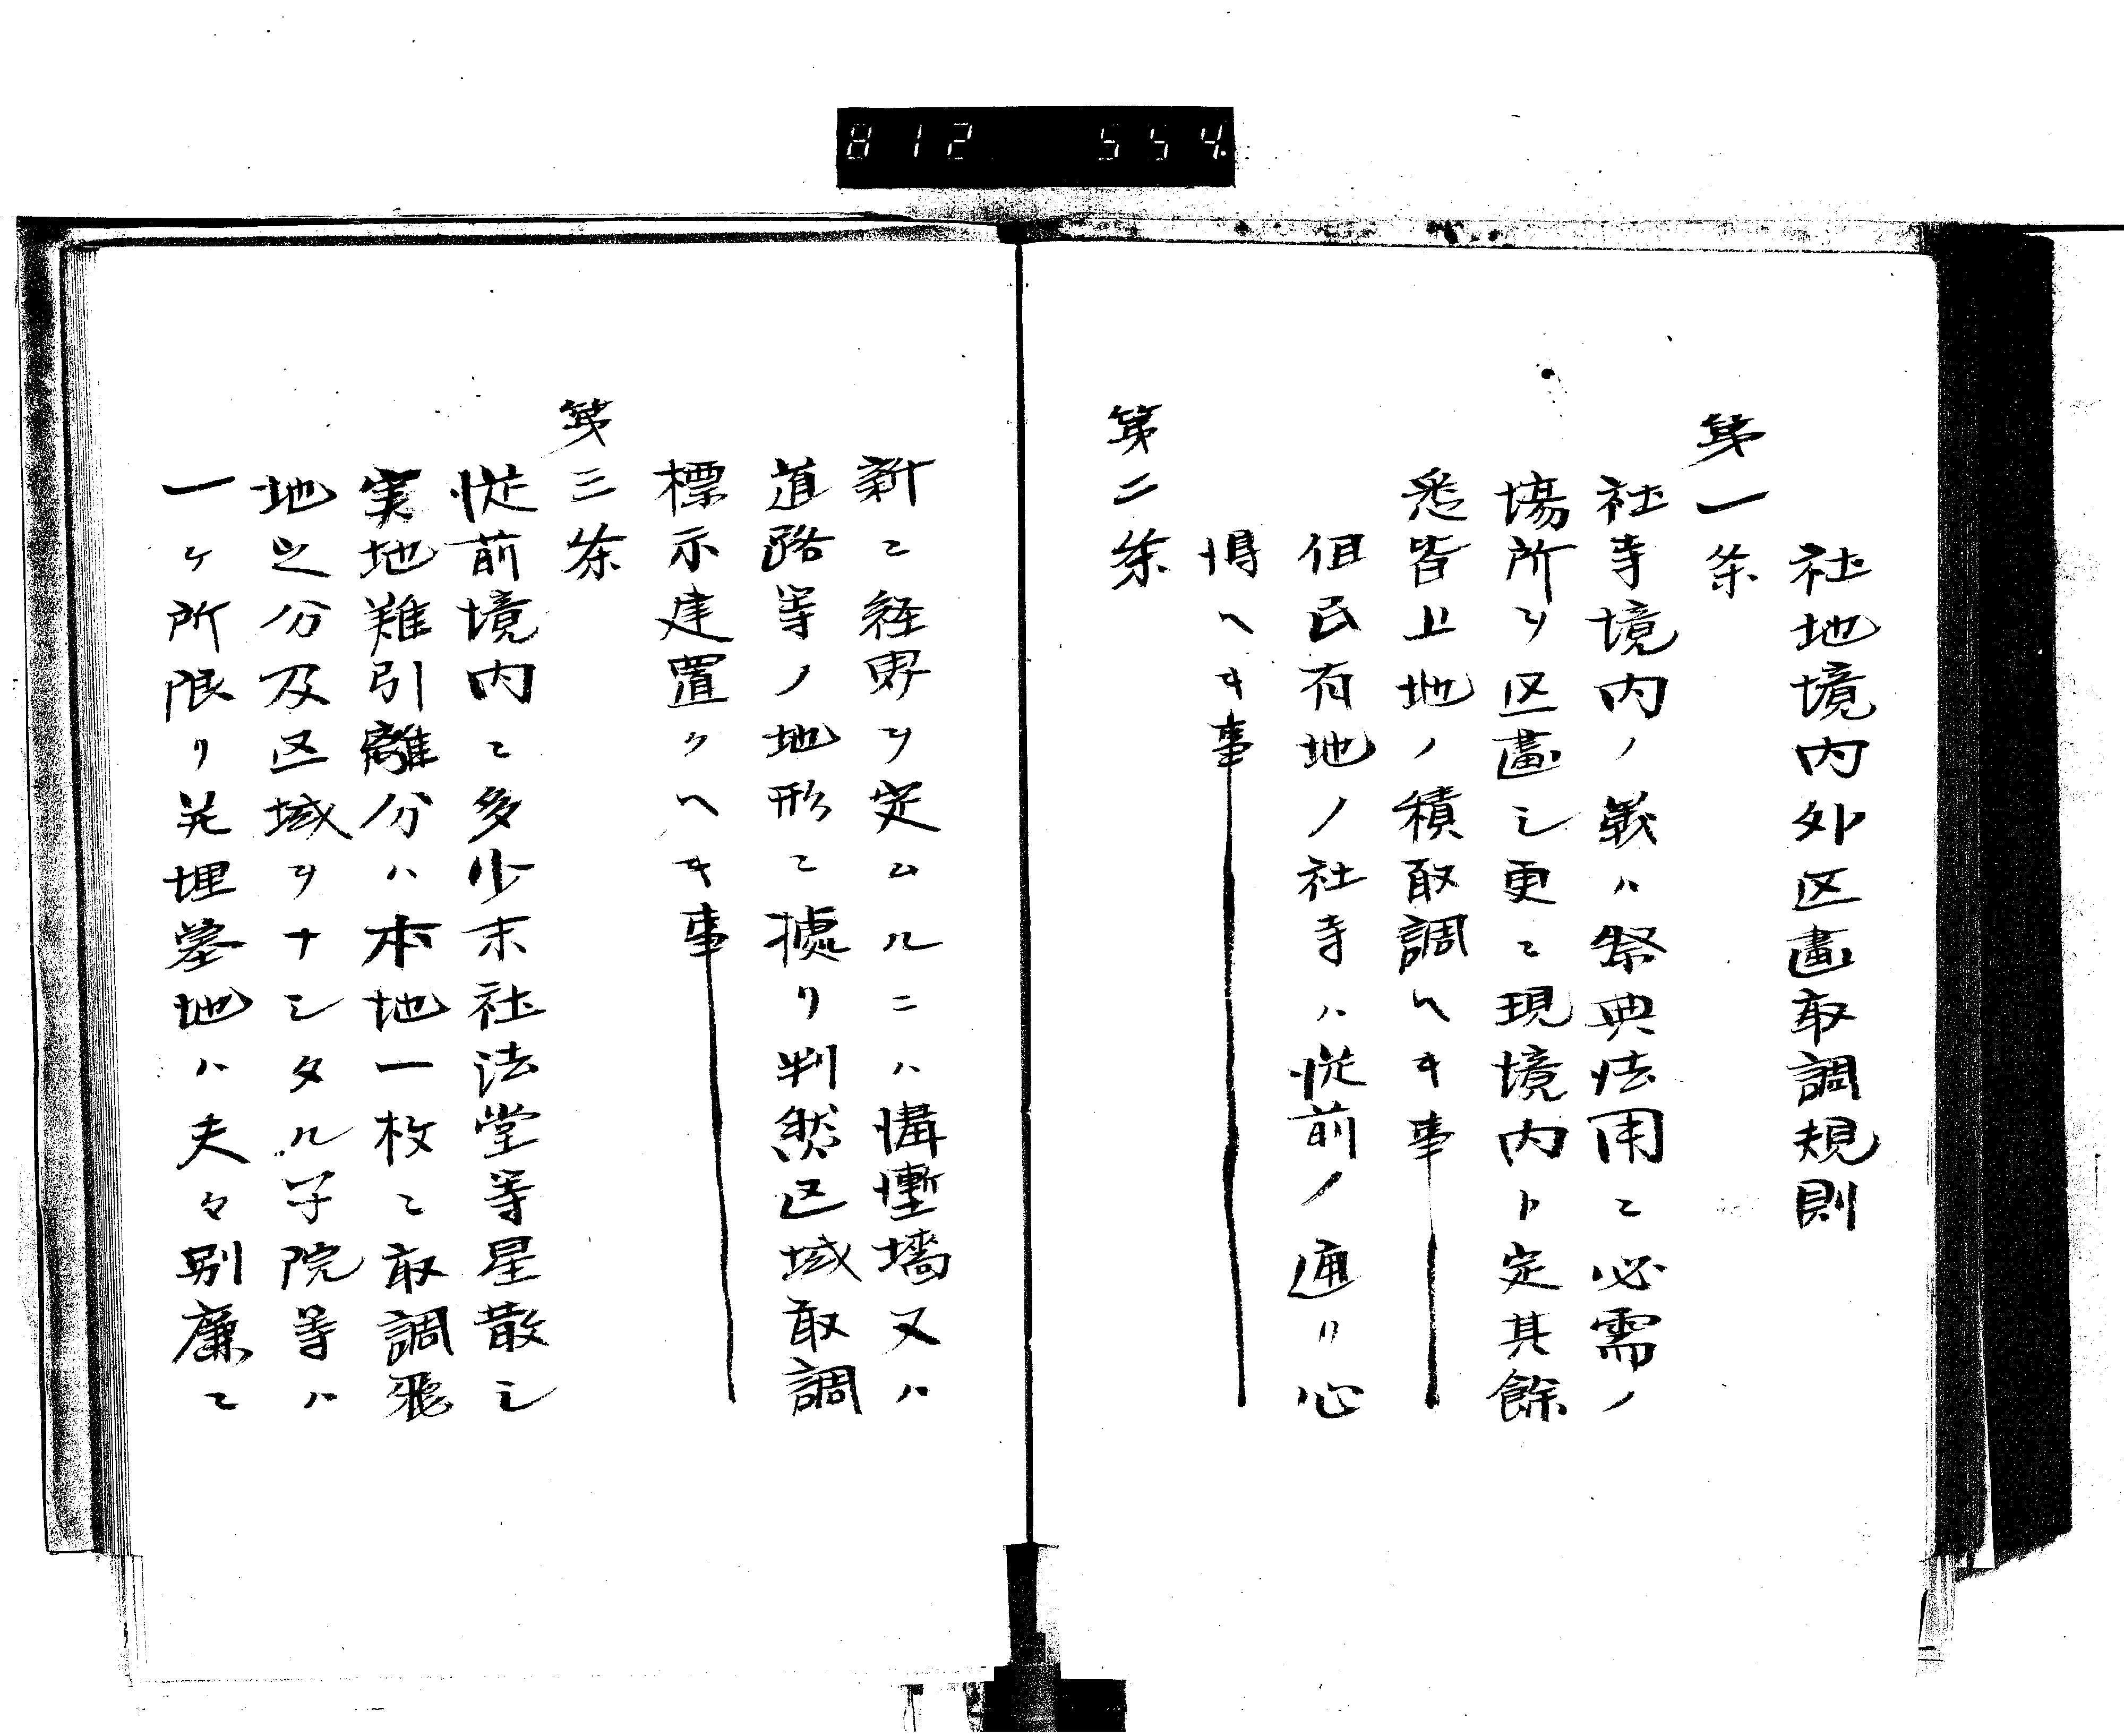 812 554.
社地境内外区畫取調規則
第一条
社寺境内ノ義ハ祭典法用ニ必需ノ
場所ヲ区畫シ更ニ現境内ト定其餘
悉皆上地ノ積取調ヘキ事
但民有地ノ社寺ハ従前ノ通リ心
得ヘキ事
第二条
新ニ経界ヲ定ムルニハ溝塹墻又ハ
道路等ノ地形ニ據リ判然区域取調
標示建置クヘキ事
第三条
従前境内ニ多少末社法堂等星散シ
実地難引離分ハ本地一枚ニ取調飛
地之分及区域ヲナシタル子院等ハ
一ヶ所限リ并埋墓地ハ夫々別廉ニ